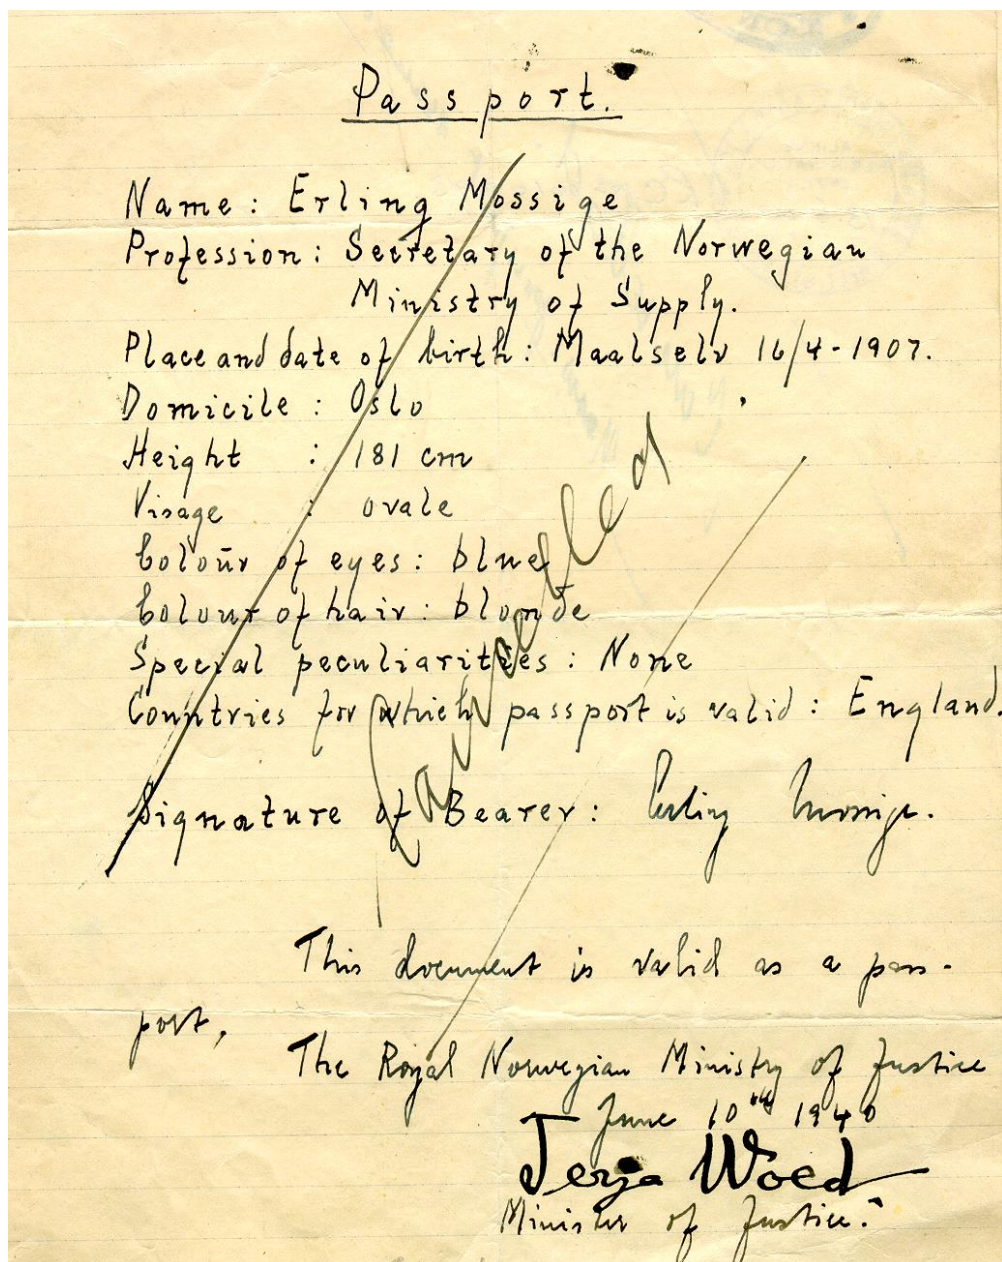 Passport.
Name: Erling Mossige
Profession: Secretary of the Norwegian
Ministry of Supply.
Place and date of birth: Maalselv 16/4-1907.
Domicile: Oslo
Height : 181 cm
Visage : ovale
Colour of eyes: blue
Colour of hair: blonde
Special peculiarities: None
Countries for which passport is valid: England.
Cancelled
Signature of Bearer: Erling Mossige.
This document is valid as a pass-
port,
The Royal Norwegian Ministry of Justice
June 10th 1940
Terje Wold
Minister of Justice.